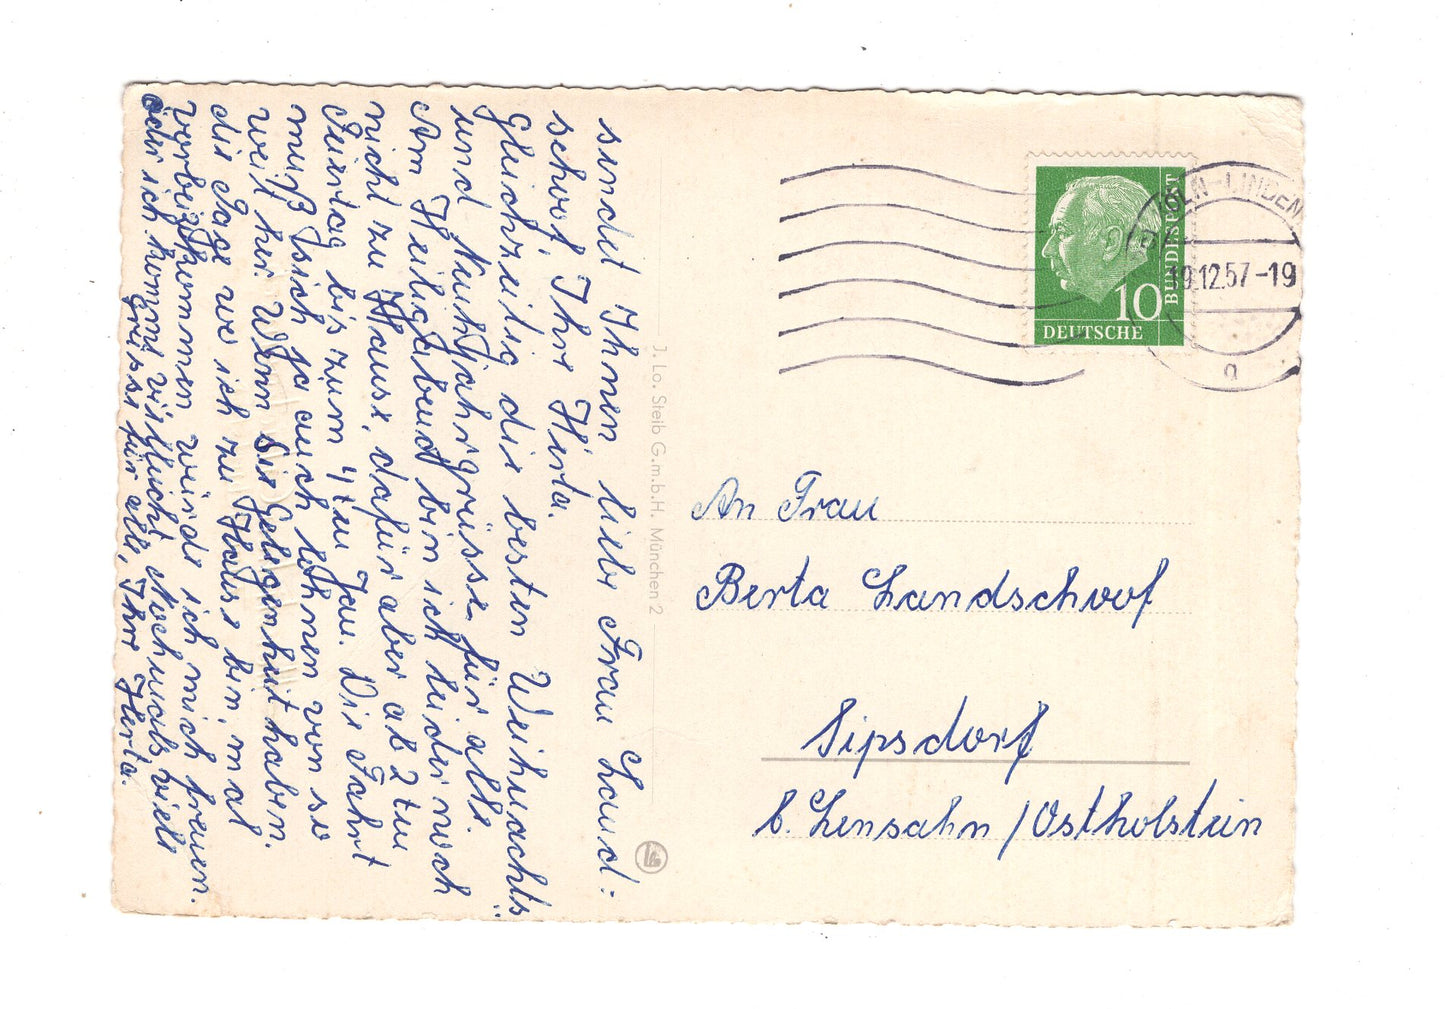 sendet Ihnen liebe Frau Land-
schoof, Ihre Herta.
Gleichzeitig die besten Weihnachts
und Neuhjahrgrüsse für alle.
Am Heiligabend bin ich leider noch
nicht zu Hause, dafür aber ab 2ten
Feiertag bis zum 4ten Jan. Die Fahrt
muß sich ja auch lohnen von so
weit her. Wenn Sie Gelegenheit haben
die Tage wo ich zu Hause bin, mal
vorbeizukommen würde ich mich freuen.
oder ich komme vielleicht. Nochmals viele
Grüsse für alle, Ihre Herta.
J. Lo. Steib G.m.b.H. München 2
DEUTSCHE
BUNDESPOST
10
KÖLN-LINDEN
19.12.57-19
a
An Frau
Berta Landschoof
Sipsdorf
b. Lensahn / Ostholstein